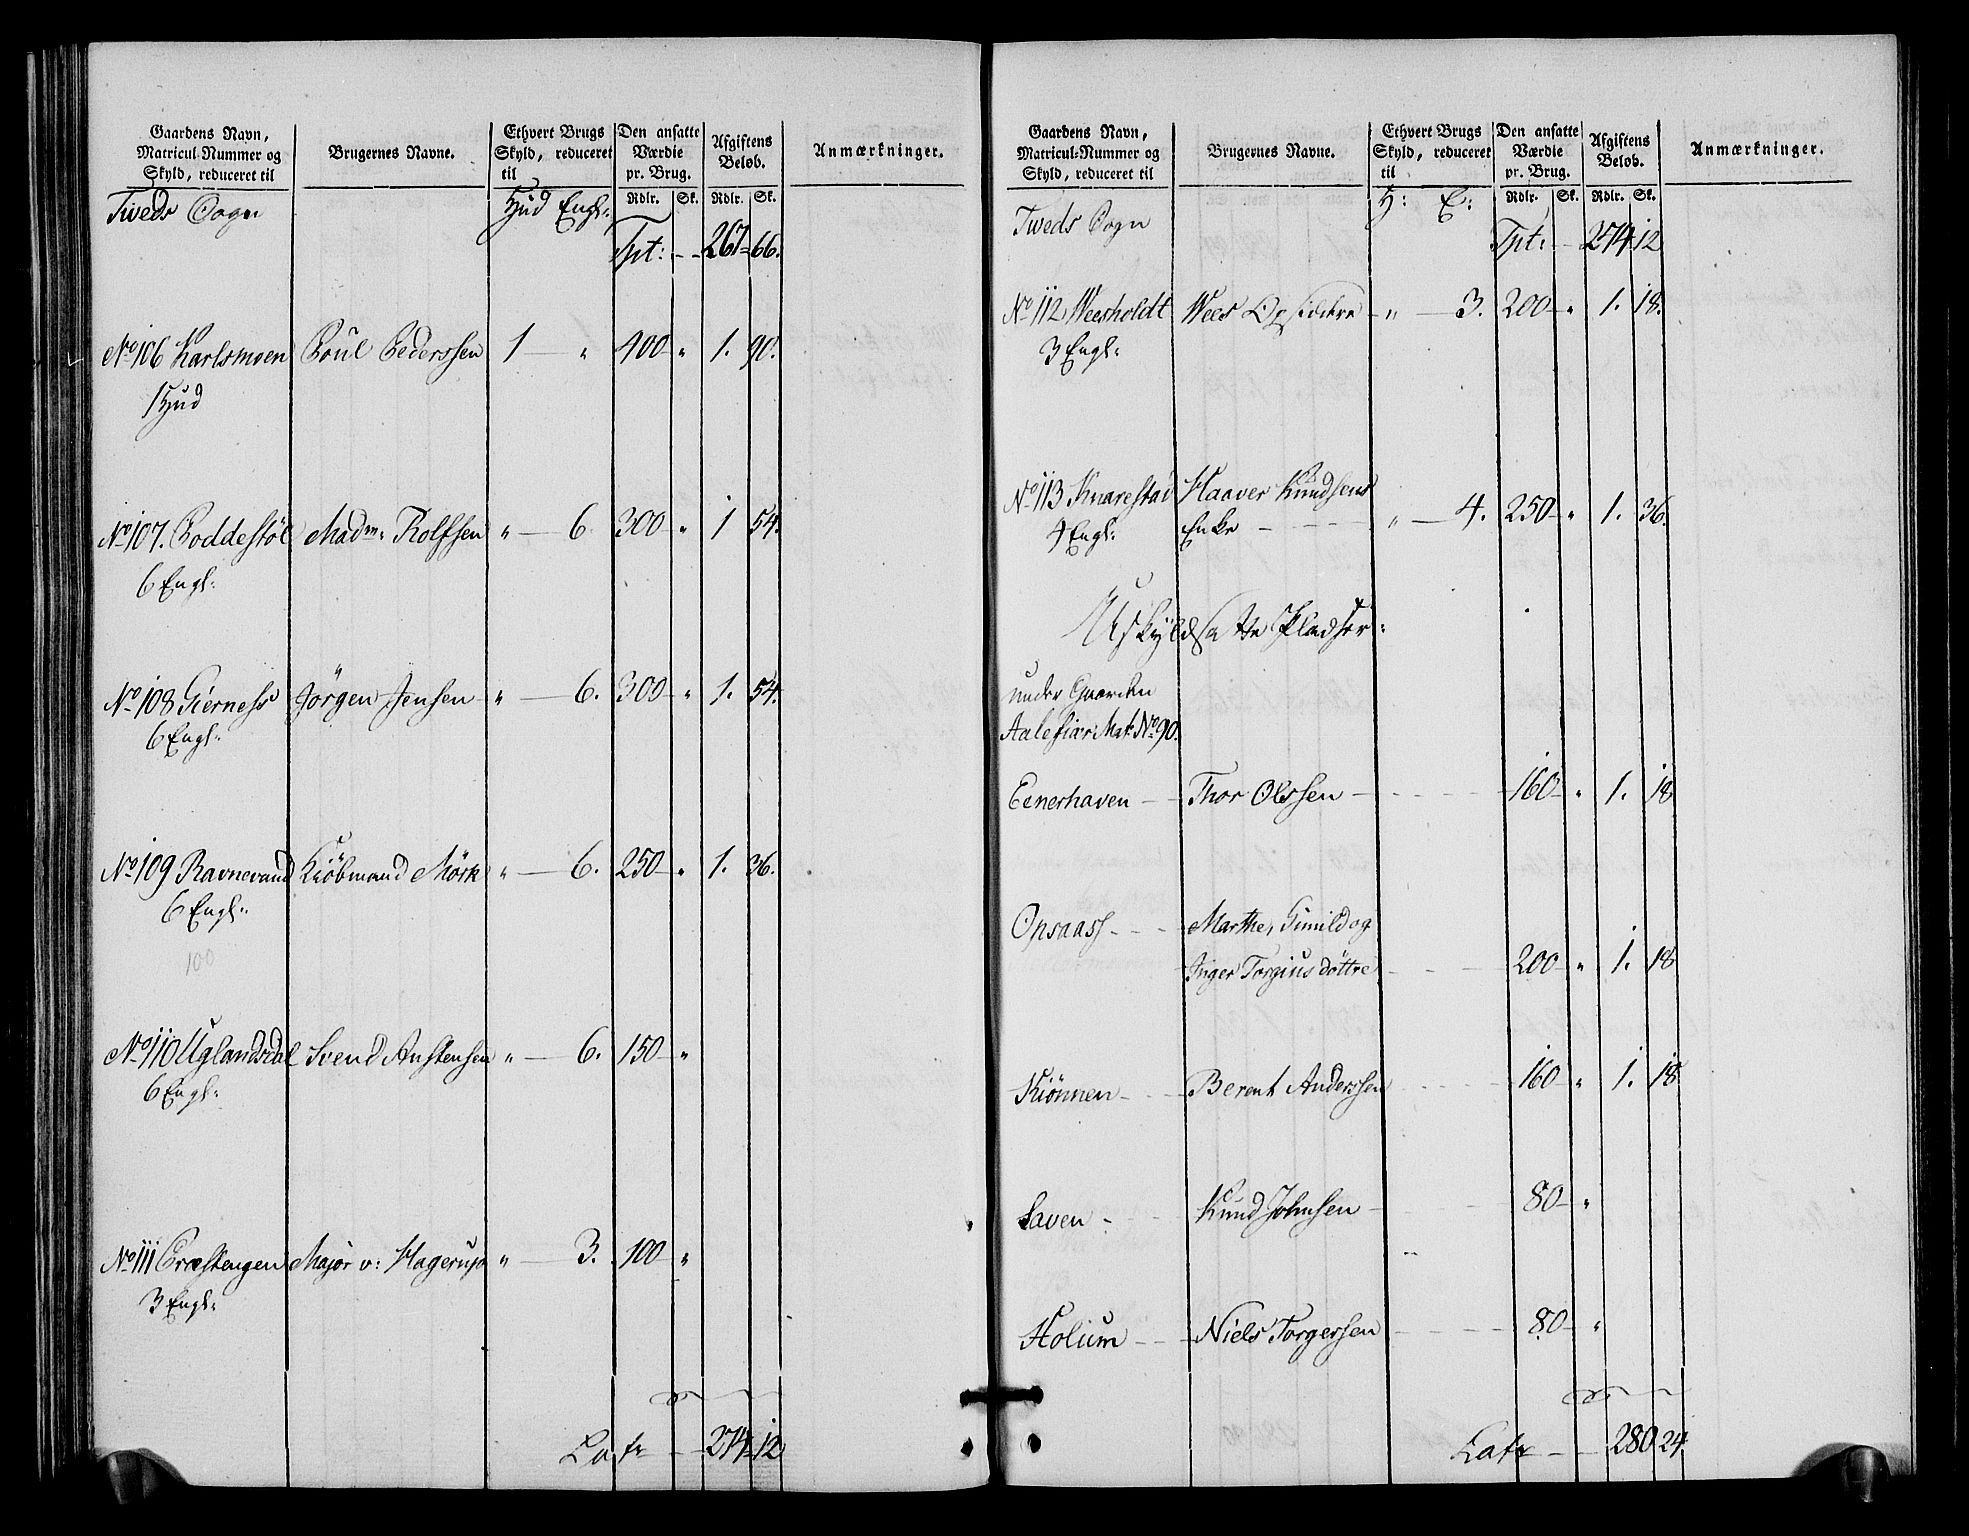 Gaardens Navn, Matricul-Nummer og Skyld, reduceret til
Brugernes Navne.
Ethvert Brugs Skyld, reduceret til
Den ansatte Værdie pr. Brug.
Afgiftens Beløb.
Anmærkninger.
Rdlr. Sk. Rdlr. Sk.
Tveds Sogn Hud Engl:
Tpt: 267 66.
No 106 Karlsmoen Poul Pederssen 1 " 400 " 1. 90.
1 Hud
No 107. Boddestøl Madm: Rolfsen " 6. 300 " 1 54.
6 Engl:
No 108 Gierness Jörgen Jensen " 6. 300 " 1. 54.
6 Engl:
No 109 Ravnevand Kiöbmand Mörk " 6. 250 " 1. 36.
6 Engl:
100
No 110 Uglandsdal Svend Anstensen " 6. 150 "
6 Engl:
No 111 Præstengen Major v: Hagerup " 3. 100 "
3 Engl:
Latr 274 12
Gaardens Navn, Matricul-Nummer og Skyld, reduceret til
Brugernes Navne.
Ethvert Brugs Skyld, reduceret til
Den ansatte Værdie pr. Brug.
Afgiftens Beløb.
Anmærkninger.
Rdlr. Sk. Rdlr. Sk.
Tweds Sogn H: E:
Tpt: 274 12
No 112 Weesholdt Wees Opsiddere " 3. 200 " 1. 18.
3 Engl:
No 113 Knarestad Haaver Knudsens
4 Engl: Enke " 4. 250 " 1. 36.
Uskyldsatte Pladser:
under Gaarden
Aalefiær Mat: No 90.
Eenerhaven Thor Olssen 160 " 1. 18
Opsaass Marthe, Gunild og
Inger Torgiusdöttre 200 " 1. 18
Kiönnen Berent Anderssen 160 " 1. 18
Saven Knud Johnsen 80 "
Holium Niels Torgersen 80 "
Latr 280 24